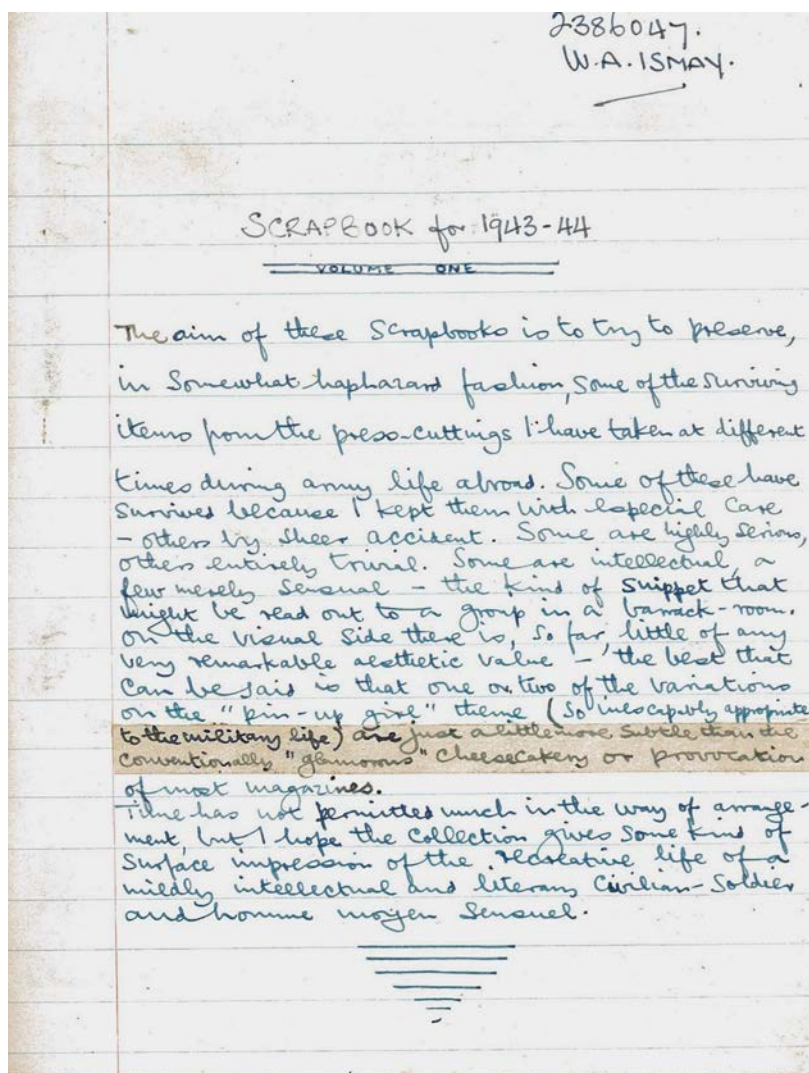 2386047.
W.A. ISMAY.
SCRAPBOOK for 1943-44
VOLUME ONE
The aim of these Scrapbooks is to try to preserve,
in somewhat haphazard fashion, some of the surviving
items from the press-cuttings I have taken at different
times during army life abroad. Some of these have
survived because I kept them with especial care
- others by sheer accident. Some are highly serious,
others entirely trivial. Some are intellectual, a
few merely sensual - the kind of snippet that
might be read out to a group in a barrack-room.
On the visual side there is, so far, little of any
very remarkable aesthetic value - the best that
can be said is that one or two of the variations
on the "pin-up girl" theme (so inescapably appropriate
to the military life) are just a little more subtle than the
conventionally "glamorous" cheesecakery or provocation
of most magazines.
Time has not permitted much in the way of arrange-
ment, but I hope the collection gives some kind of
surface impression of the recreative life of a
mildly intellectual and literary Civilian-Soldier
and homme moyen sensuel.